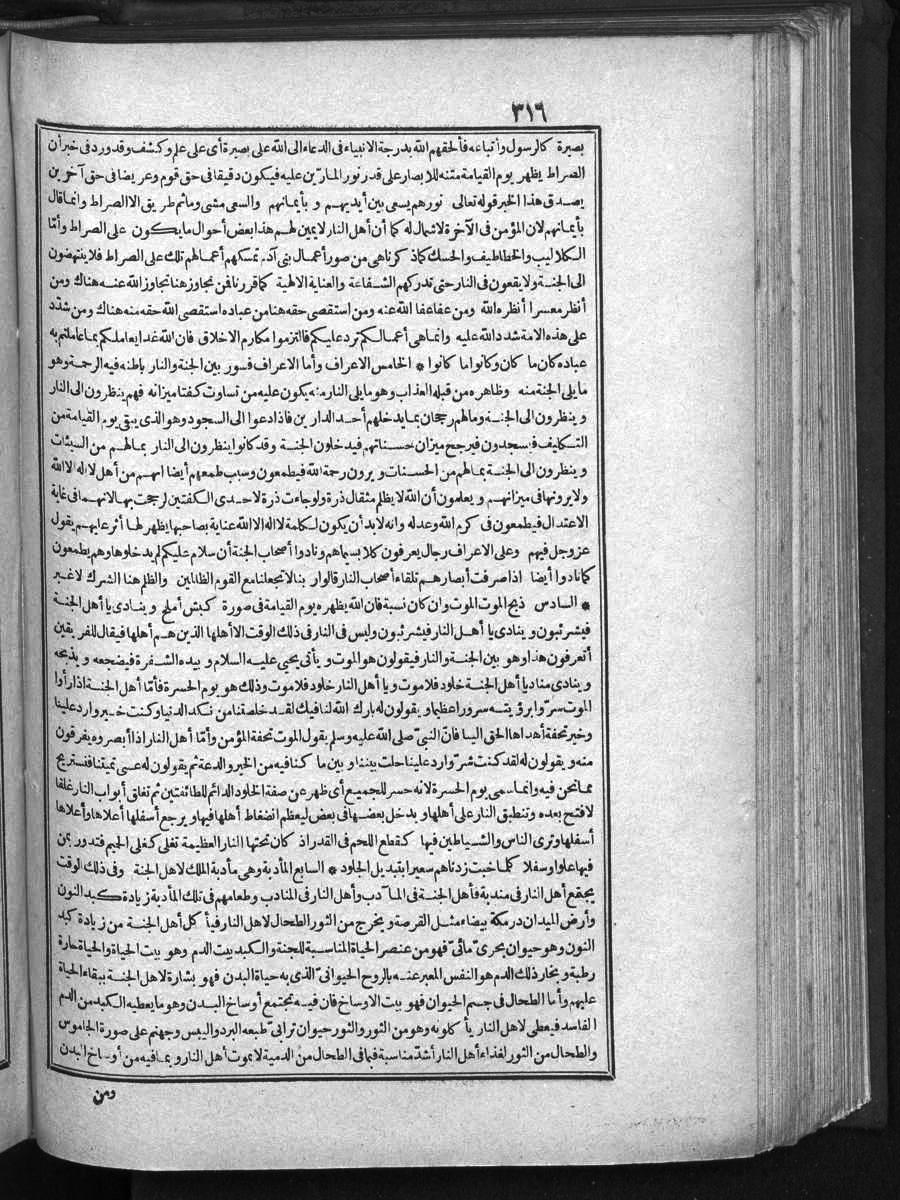 ٣١٦
بصيرة كالرسول وأتباعه فألحقهم الله بدرجة الانبياء فى الدعاء الى الله على بصيرة أى على علم وكشف وقد ورد فى خبر أن
الصراط يظهر يوم القيامة متنه للابصار على قدر نور المارّين عليه فيكون دقيقا فى حق قوم وعريضا فى حق آخرين
يصدق هذا الخبر قوله تعالى نورهم يسعى بين أيديهم وبأيمانهم والسعى مشى وماثم طريق الا الصراط وانما قال
بأيمانهم لان المؤمن فى الآخرة لا شمال له كما أن أهل النار لا يمين لهم هذا بعض أحوال ما يكون على الصراط وأمّا
الكلاليب والخطاطيف والحسك كما ذكرناهى من صور أعمال بنى آدم تمسكهم أعمالهم تلك على الصراط فلا ينتهضون
الى الجنة ولا يقعون فى النار حتى تدركهم الشفاعة والعناية الالهية كما قررنا فمن تجاوز هنا تجاوز الله عنه هناك ومن
أنظر معسرا أنظره الله ومن عفا عفا الله عنه ومن استقصى حقه هنا من عباده استقصى الله حقه منه هناك ومن شدّد
على هذه الامة شدد الله عليه وانما هى أعمالكم ترد عليكم فالتزموا مكارم الاخلاق فان الله غدا يعاملكم بما عاملتم به
عباده كان ما كان وكانوا ما كانوا * الخامس الاعراف وأما الاعراف فسور بين الجنة والنار باطنه فيه الرحمة وهو
ما يلى الجنة منه وظاهره من قبله العذاب وهو ما يلى النار منه يكون عليه من تساوت كفتا ميزانه فهم ينظرون الى النار
وينظرون الى الجنة وما لهم رجحان بما يدخلهم أحد الدارين فاذا دعوا الى السجود وهو الذى يبقى يوم القيامة من
التكليف فيسجدون فيرجح ميزان حسناتهم فيدخلون الجنة وقد كانوا ينظرون الى النار بمالهم من السيئات
وينظرون الى الجنة بمالهم من الحسنات ويرون رحمة الله فيطمعون وسبب طمعهم أيضا انهم من أهل لا اله الا الله
ولا يرونها فى ميزانهم ويعلمون أن الله لا يظلم مثقال ذرة ولو جاءت ذرة لاحدى الكفتين لرجحت بها لانهما فى غاية
الاعتدال فيطمعون فى كرم الله وعدله وانه لا بد أن يكون لكلمة لا اله الا الله عناية بصاحبها يظهر لها أثر عليهم يقول
عز وجل فيهم وعلى الاعراف رجال يعرفون كلا بسيماهم ونادوا أصحاب الجنة أن سلام عليكم لم يدخلوها وهم يطمعون
كما نادوا أيضا اذا صرفت أبصارهم تلقاء أصحاب النار قالوا ربنا لا تجعلنا مع القوم الظالمين والظلم هنا الشرك لا غير
* السادس ذبح الموت الموت وان كان نسبة فان الله يظهره يوم القيامة فى صورة كبش أملح وينادى يا أهل الجنة
فيشرئبون وينادى يا أهل النار فيشرئبون وليس فى النار فى ذلك الوقت الا أهلها الذين هم أهلها فيقال للفريقين
أتعرفون هذا وهو بين الجنة والنار فيقولون هو الموت ويأتى يحيى عليه السلام وبيده الشفرة فيضجعه ويذبحه
وينادى مناد يا أهل الجنة خلود فلا موت ويا أهل النار خلود فلا موت وذلك هو يوم الحسرة فأمّا أهل الجنة اذا رأوا
الموت سرّوا برؤيته سرورا عظيما ويقولون له بارك الله لنا فيك لقد خلصتنا من نكد الدنيا وكنت خير وارد علينا
وخير تحفة أهداها الحق الينا فانّ النبىّ صلى الله عليه وسلم يقول الموت تحفة المؤمن وأمّا أهل النار اذا أبصروه يفرقون
منه ويقولون له لقد كنت شرّ وارد علينا حلت بيننا وبين ما كنا فيه من الخير والدعة ثم يقولون له عسى تميتنا فنستريح
مما نحن فيه وانما سمى يوم الحسرة لانه حسر للجميع أى ظهر عن صفة الخلود الدائم للطائفتين ثم تغلق أبواب النار غلقا
لا فتح بعده وتنطبق النار على أهلها ويدخل بعضها فى بعض ليعظم انضغاط أهلها فيها ويرجع أسفلها أعلاها وأعلاها
أسفلها وترى الناس والشياطين فيها كقطع اللحم فى القدر اذ كان تحتها النار العظيمة تغلى كغلى الحميم فتدور بمن
فيها علوا وسفلا كلما خبت زدناهم سعيرا بتبديل الجلود * السابع المأدبة وهى مأدبة الملك لاهل الجنة وفى ذلك الوقت
يجتمع أهل النار فى مندبة فأهل الجنة فى المآدب وأهل النار فى المنادب وطعامهم فى تلك المأدبة زيادة كبد النون
وأرض الميدان درمكة بيضاء مثل القرصة ويخرج من الثور الطحال لاهل النار فيأكل أهل الجنة من زيادة كبد
النون وهو حيوان بحرىّ مائىّ فهو من عنصر الحياة المناسبة للجنة والكبد بيت الدم وهو بيت الحياة والحياة حارة
رطبة وبخار ذلك الدم هو النفس المعبر عنه بالروح الحيوانىّ الذى به حياة البدن فهو بشارة لاهل الجنة ببقاء الحياة
عليهم وأما الطحال فى جسم الحيوان فهو بيت الاوساخ فان فيه تجتمع أوساخ البدن وهو ما يعطيه الكبد من الدم
الفاسد فيعطى لاهل النار يأكلونه وهو من الثور والثور حيوان ترابىّ طبعه البرد واليبس وجهنم على صورة الجاموس
والطحال من الثور لغذاء أهل النار أشدّ مناسبة فبما فى الطحال من الدمية لا يموت أهل النار وبما فيه من أوساخ البدن
ومن